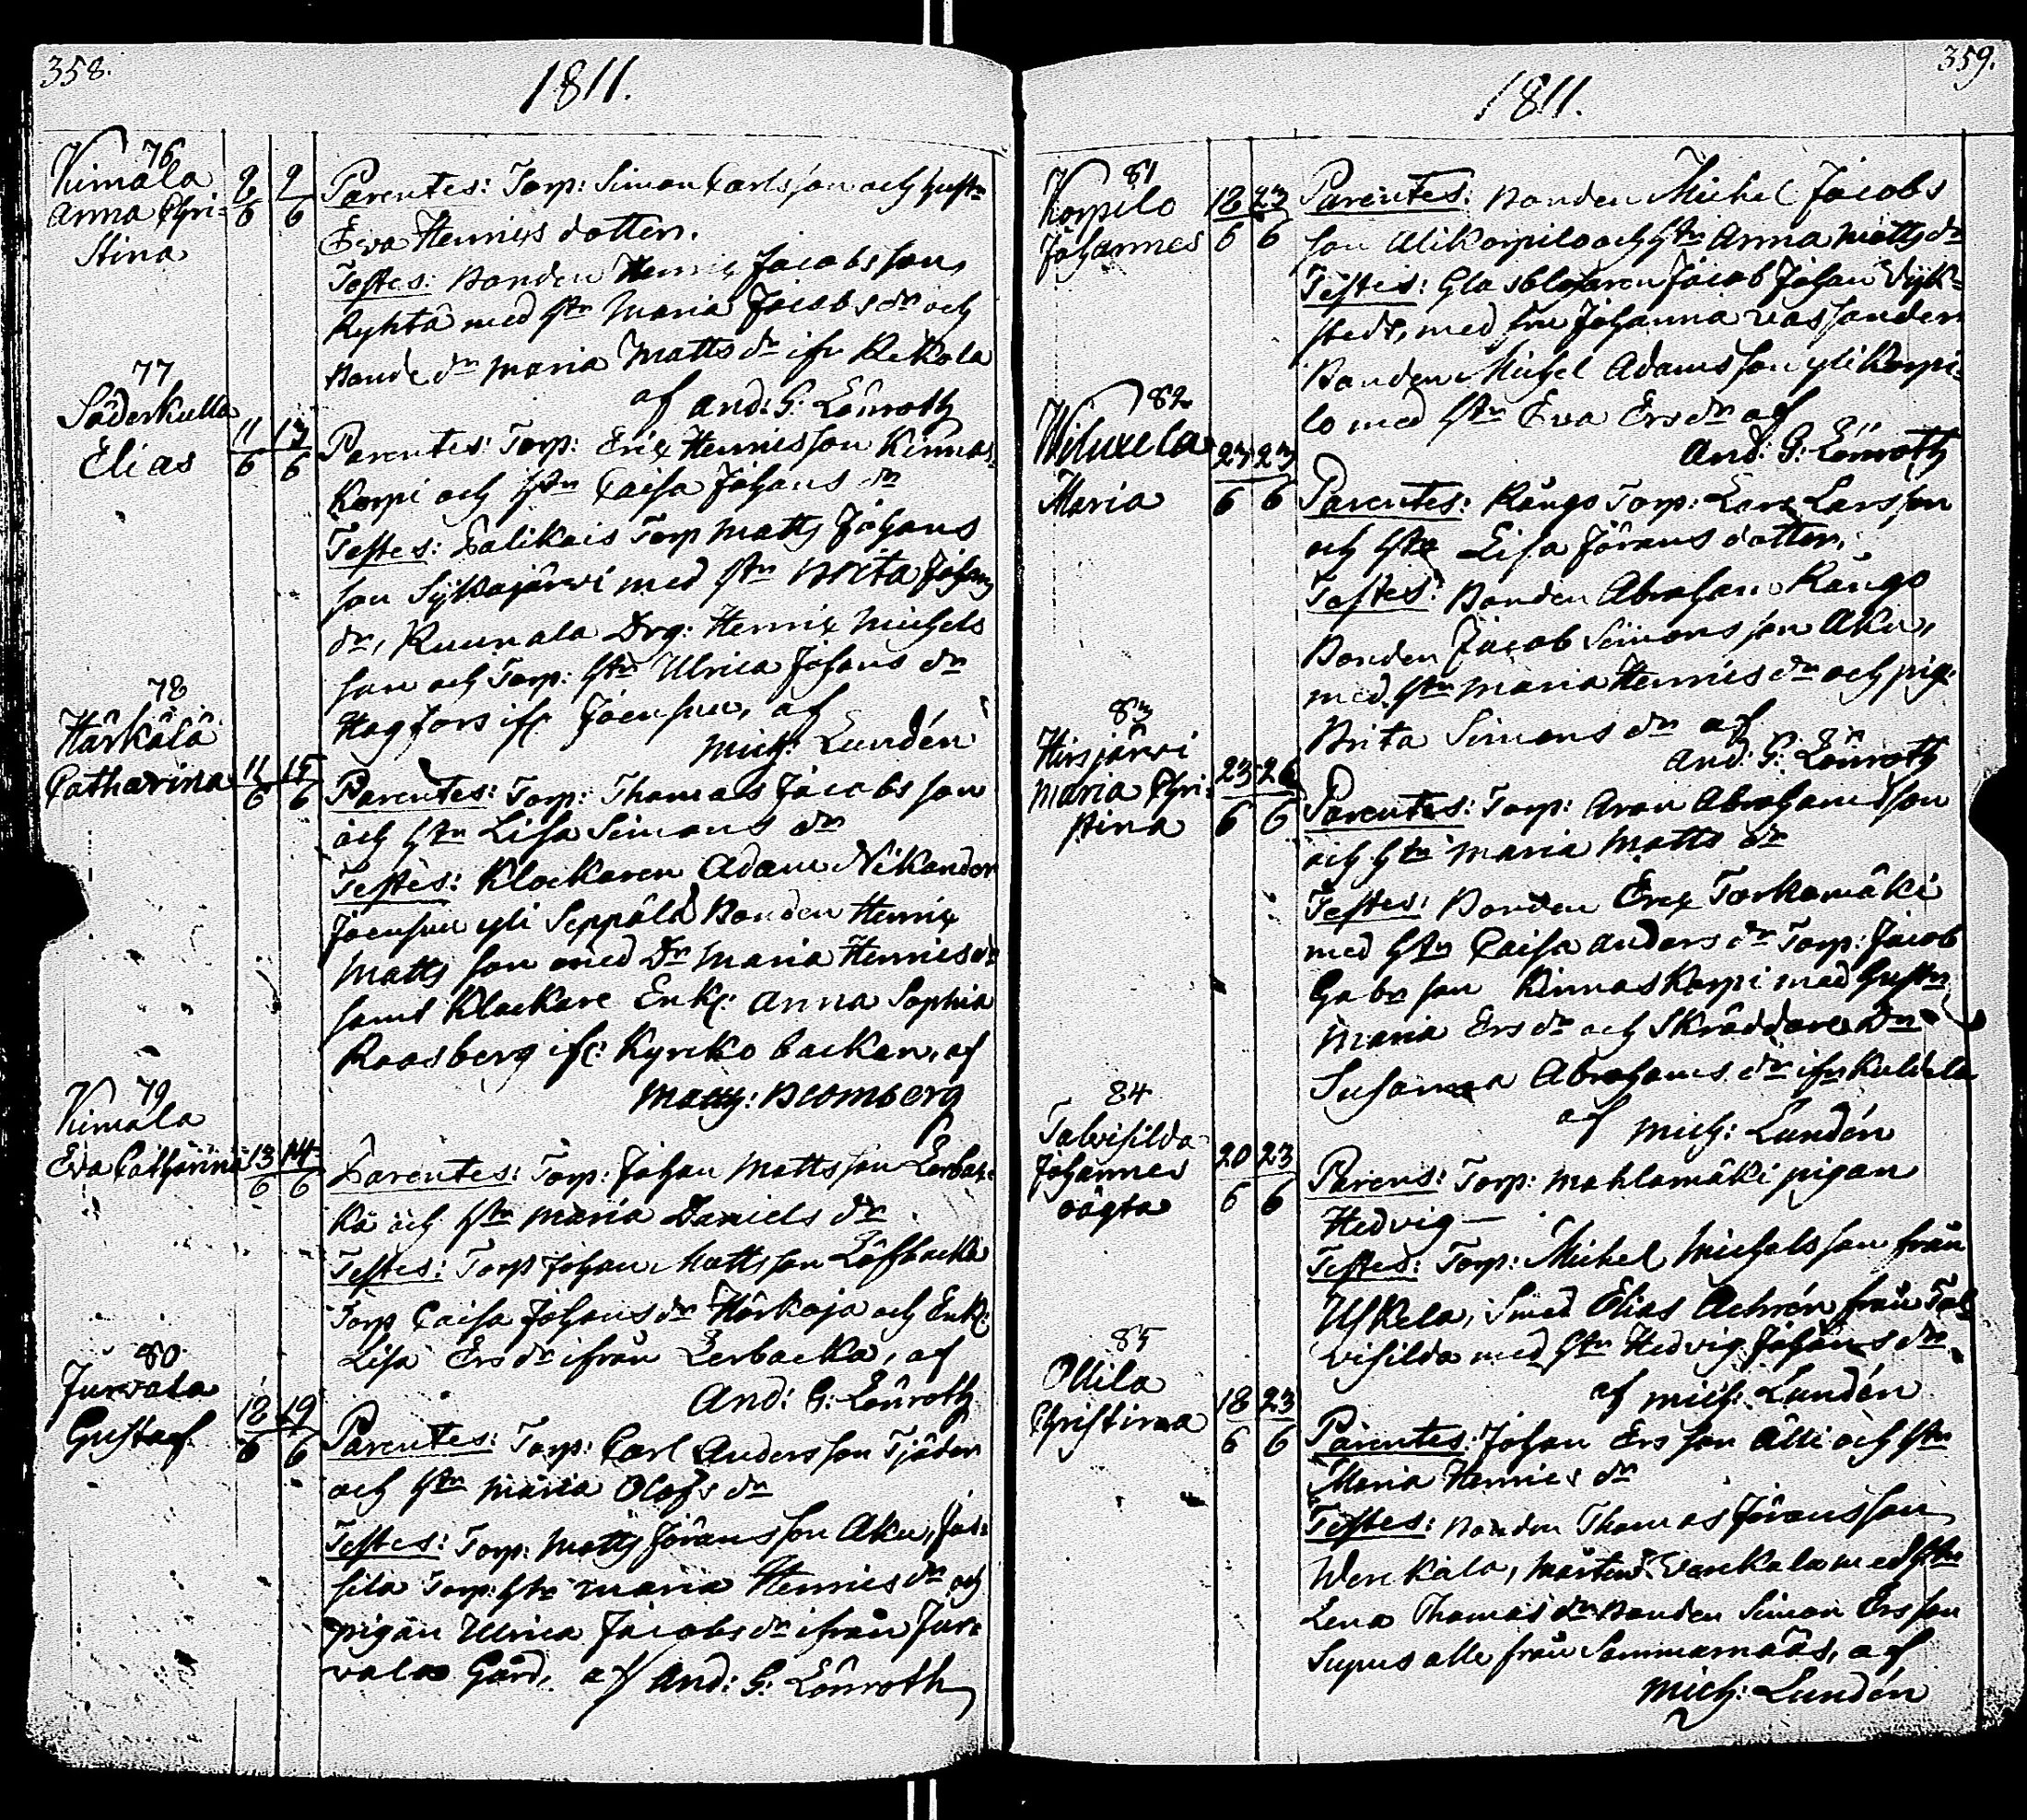 358.
1811.
76
Kimala
Anna Chri-
stina
2/6 2/6
Parentes: Torp: Simon Carlsson och hustn
Eva Henrics dotter.
Testes: Bonden Henric Jacobsson
Ryhtä med htn Maria Jacobs dr och
Bonde dr Maria Matts dr ifr Rekola
af And: G: Lönroth
77
Söderkulla
Elias
11/6 13/6
Parentes: Torp: Eric Henricsson Kinnas-
korpi och htn Caisa Johans dr
Testes: Torp Matts Johans
son Sÿkäjärvi med htn Brita Johans
dr, Kuurala Drg: Henric Michels
son och Torp: htn Ulrica Johans dr
Hagfors ifr Joensuu, af
Mich: Lundén
78
Härkälä
Catharina
11/6 15/6
Parentes: Torp: Thomas Jacobsson
och htn Lisa Simons dr
Testes: Klockaren Adam Nikander
Joensuu yli Seppälä Bonden Henric
Matts son med Dr Maria Henrics dr
samt Klockare Enk: Anna Sophia
Roosberg ifr: Kyrcko backan, af
Matth: Blomberg
79
Kimala
Eva Catharina
13/6 14/6
Parentes: Torp: Johan Mattsson Lerbac-
ka och htn Maria Daniels dr
Testes: Torp Johan Mattsson Löfbacka
Torp Caisa Johans dr Härkoja och Enk:
Lisa Ers dr ifrån Lerbacka, af
And: G: Lönroth
80
Jurvala
Gustaf
18/6 19/6
Parentes: Torp: Carl Andersson Tjäder
och htn Maria Olofs dr
Testes: Torp: Matts Jöransson Aku, Jus-
sila Torp: htn Maria Henrics dr och
pigan Ulrica Jacobs dr ifrån Jur-
vala Gård, af And: G: Lönroth
359.
1811.
81
Korpilo
Johannes
18/6 23/6
Parentes: Bonden Michel Jacobs
son Alikorpilo och htn Anna Matts dr
Testes: Glasblåsaren Jacob Johan Dÿk-
stedt, med fru Johanna Vassander
Bonden Michel Adamsson yli Korpi-
lo med htn Eva Ers dr af
And: G: Lönroth
82
Maria
23/6 23/6
Parentes: Kångo Torp: Lars Larsson
och htr Lisa Jörans dotter,
Testes: Bonden Abraham Kångo
Bonden Jacob Simonsson Aku,
med htn Maria Henrics dr och pig:
Brita Simons dr af
And: G: Lönroth
83
Hirsjärvi
Maria Chri-
stina
23/6 26/6
Parentes: Torp: Aron Abrahamsson
och htn Maria Matts dr
Testes: Bonden Eric Torkomäki
med htn Caisa Anders dr Torp: Jacob
Gabr son Kinnaskorpi med hustn
Maria Ers dr och Skräddare Dr
Susanna Abrahams dr ifr Kuldala
af Mich: Lundén
84
Talvisilda
Johannes
oägta
20/6 23/6
Parens: Torp: Mahlamäki pigan
Hedvig —
Testes: Torp: Michel Michelsson från
Uskela, Smed Elias Achrén från Tal-
visilda med htn Hedvig Johans dr
af Mich: Lundén
85
Ollila
Christina
18/6 23/6
Parentes: Johan Ersson Älli och htn
Maria Henrics dr
Testes: Bonden Thomas Jöransson
Werckala, Mårten Verckala med htn
Lena Thomas dr Bonden Simon Ersson
Supusalle från Sammarnääs, af
Mich: Lundén